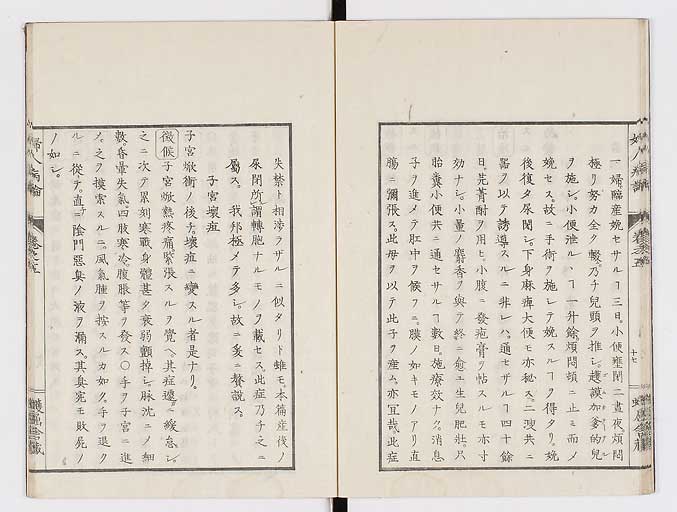 一婦臨産娩セサルヿ三日。小便壅閉二晝夜煩悶
極リ努力全ク輟ム乃チ兒頭ヲ推シ護謨加爹的兒
ヲ施シ。小便泄ルヽヿ一升餘。煩悶頓ニ止ミ而メ
娩セス。故ニ手術ヲ施シテ娩スルヿヲ得タリ。娩
後復タ尿閉シ。下身麻痺大便モ亦秘ス。二洩共ニ
器ヲ以テ誘導スルニ非レハ。通セサルヿ四十餘
日。芫菁酎ヲ用ヒ。小腹ニ發疱膏ヲ帖スルモ亦寸
効ナシ。小量ノ麝香ヲ與テ終ニ愈ユ生兒肥壯尺
胎糞小便共ニ通セサルヿ數日。施療效ナク。消息
子ヲ進メテ肛中ヲ候フニ。膜ノ如キモノアリ直
腸ニ彌張ス。此母ヲ以テ此子ヲ産ム亦冝哉。此症
失禁ト相渉ラザルニ似タリト雖モ。本篇産後ノ
尿閉所謂轉胞ナルモノヲ載セス。此症乃チ之ニ
屬ス。我邦極メテ多シ。故ニ爰ニ贅説ス。
子宮壞症
子宮焮衝ノ後チ。壞症ニ變スル者是ナリ。
徴候 子宮焮熱疼痛緊張スルヲ覺ヘ其症遽ニ緩怠シ。
之ニ次テ累刻寒戰身體甚タ衰弱顫掉シ。脉沈ニノ細
數。昏暈失氣。四肢寒冷。腹脹等ヲ發ス〇手ヲ子宮ニ進
メ。之ヲ摸索スルニ。風氣腫ヲ按スルカ如ク。手ヲ退ク
ルニ從テ。直ニ陰門惡臭ノ液ヲ漏ス。其臭宛モ敗屍ノ
ノ如シ。
婦人病論
十七